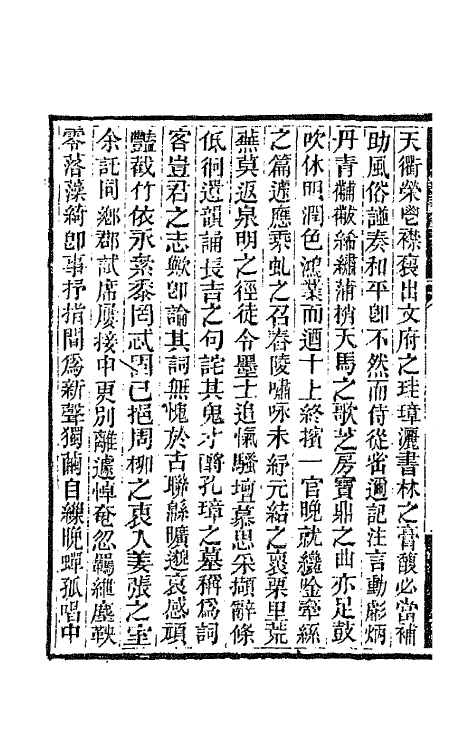 天衢榮鬯襟褱出文府之珪璋灑書林之膏馥必當補
助風俗謹奏和平卽不然而侍從密邇記注言動彪炳
丹青黼黻絺繡蒲梢天馬之歌芝房寶鼎之曲亦足鼓
吹休明潤色鴻業而迺十上終擯一官晚就纔唫牽絲
之篇遽應乘虬之召舂陵嘯咏未紓元結之褱栗里荒
蕪莫返泉明之徑徒令墨士追愾騷壇慕思采擷辭條
低徊遺韻誦長吉之句詫其鬼才酹孔璋之墓稱爲詞
客豈君之志歟卽論其詞無愧於古聯緜曠邈哀感頑
豔截竹依永絫黍罔忒固已挹周柳之衷入姜張之室
余託同鄉郡試席屢接中更別離遽悼奄忽羈紲塵鞅
零落藻綺卽事抒指閒爲新聲獨繭自繅晚蟬孤唱中